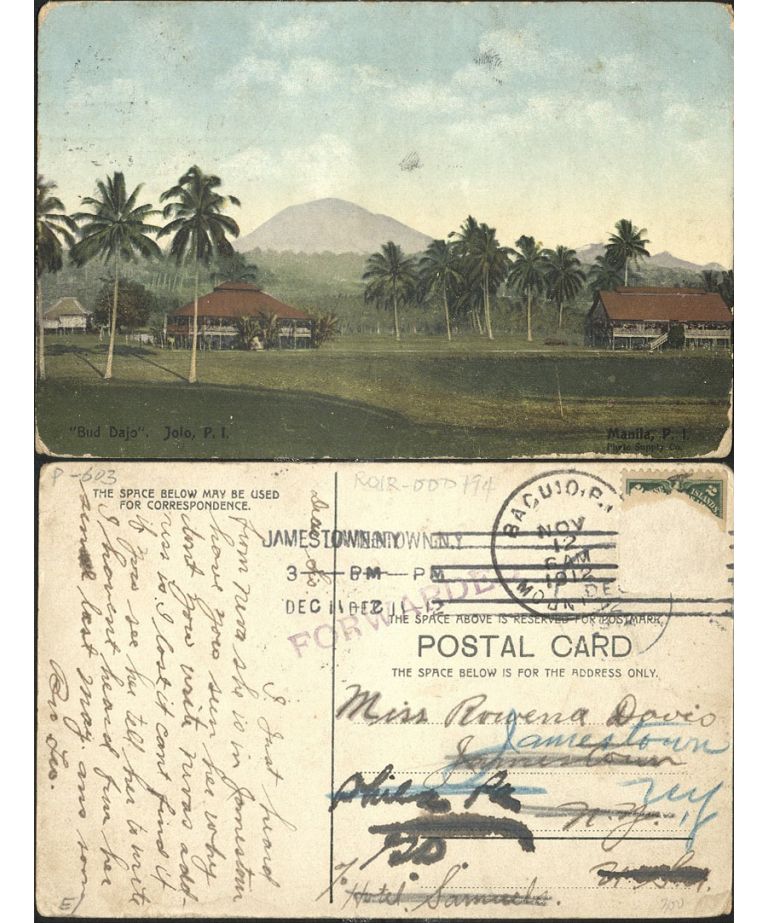 "Bud Dajo". Jolo, P. I.
Manila, P. I.
Photo Supply Co.
P-603
THE SPACE BELOW MAY BE USED
FOR CORRESPONDENCE.
Dear Sis
I Just heard
from neva she is in Jamestown
have you seen her why
dont you write nevas add-
ress is I lost it cant find it
if you see her tell her to write
I havent heard from her
since last may. ans soon
Bro Leo.
E
JAMESTOWN, N.Y.
3 - PM
DEC 11
FORWARDED
BAGUIO, P.I.
NOV
12
6 AM
1912
MOUNT
DEC
2
ISLANDS
2
THE SPACE ABOVE IS RESERVED FOR POSTMARK.
POSTAL CARD
THE SPACE BELOW IS FOR THE ADDRESS ONLY.
Miss Rowena Davis
Jamestown
Jamestown
Phila Pa
N.Y.
NY
G.D.
Hotel Samuels.